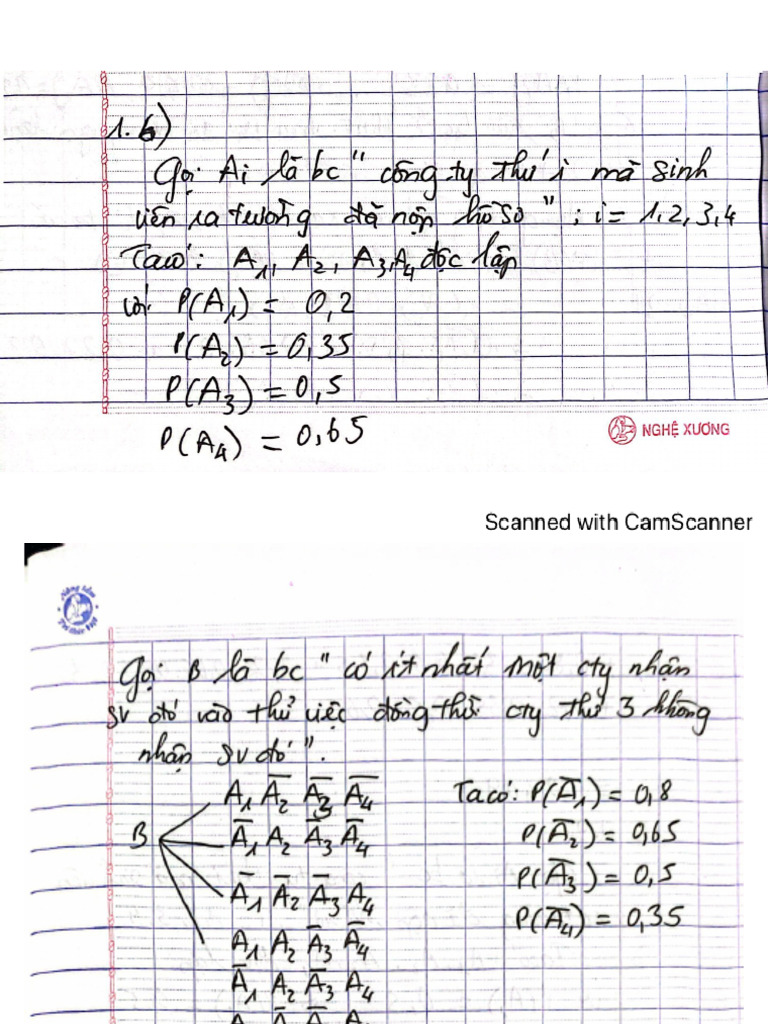 1.6)
Gọi Ai là bc " công ty thứ i mà sinh
viên ra trường đã nộp hồ sơ " ; i = 1, 2, 3, 4
Ta có : A₁, A₂, A₃, A₄ độc lập
với P(A₁) = 0,2
P(A₂) = 0,35
P(A₃) = 0,5
P(A₄) = 0,65
NGHỆ XƯƠNG
Scanned with CamScanner
Gọi B là bc " có ít nhất một cty nhận
sv đó vào thử việc đồng thời cty thứ 3 không
nhận sv đó ".
A₁ A̅₂ A̅₃ A̅₄
Ta có : P(A̅₁) = 0,8
B
A̅₁ A₂ A̅₃ A̅₄
P(A̅₂) = 0,65
A̅₁ A̅₂ A̅₃ A₄
P(A̅₃) = 0,5
A₁ A₂ A̅₃ A̅₄
P(A̅₄) = 0,35
A̅₁ A₂ A̅₃ A₄